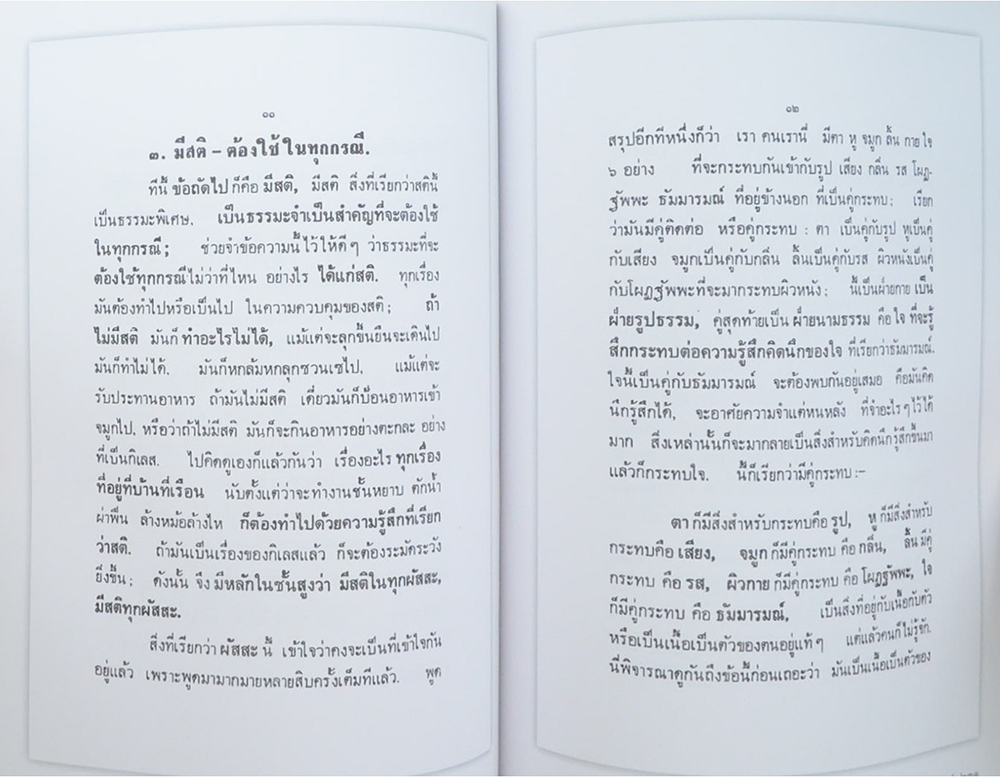 ๑๑
๓. มีสติ – ต้องใช้ในทุกกรณี.
ทีนี้ ข้อถัดไป ก็คือ มีสติ, มีสติ สิ่งที่เรียกว่าสตินี้
เป็นธรรมะพิเศษ. เป็นธรรมะจำเป็นสำคัญที่จะต้องใช้
ในทุกกรณี; ช่วยจำข้อความนี้ไว้ให้ดีๆ ว่าธรรมะที่จะ
ต้องใช้ทุกกรณีไม่ว่าที่ไหน อย่างไร ได้แก่สติ. ทุกเรื่อง
มันต้องทำไปหรือเป็นไป ในความควบคุมของสติ; ถ้า
ไม่มีสติ มันก็ ทำอะไรไม่ได้, แม้แต่จะลุกขึ้นยืนจะเดินไป
มันก็ทำไม่ได้. มันก็หกล้มหกลุกซวนเซไป. แม้แต่จะ
รับประทานอาหาร ถ้ามันไม่มีสติ เดี๋ยวมันก็ป้อนอาหารเข้า
จมูกไป. หรือว่าถ้าไม่มีสติ มันก็จะกินอาหารอย่างตะกละ อย่าง
ที่เป็นกิเลส. ไปคิดดูเองก็แล้วกันว่า เรื่องอะไร ทุกเรื่อง
ที่อยู่ที่บ้านที่เรือน นับตั้งแต่ว่าจะทำงานชั้นหยาบ ตักน้ำ
ผ่าฟืน ล้างหม้อล้างไห ก็ต้องทำไปด้วยความรู้สึกที่เรียก
ว่าสติ. ถ้ามันเป็นเรื่องของกิเลสแล้ว ก็จะต้องระมัดระวัง
ยิ่งขึ้น; ดังนั้น จึง มีหลักในชั้นสูงว่า มีสติในทุกผัสสะ,
มีสติทุกผัสสะ.
สิ่งที่เรียกว่า ผัสสะ นี้ เข้าใจว่าคงจะเป็นที่เข้าใจกัน
อยู่แล้ว เพราะพูดมามากมายหลายสิบครั้งเต็มทีแล้ว. พูด
๑๒
สรุปอีกทีหนึ่งก็ว่า เรา คนเรานี่ มีตา หู จมูก ลิ้น กาย ใจ
๖ อย่าง ที่จะกระทบกันเข้ากับรูป เสียง กลิ่น รส โผฏ-
ฐัพพะ ธัมมารมณ์ ที่อยู่ข้างนอก ที่เป็นคู่กระทบ; เรียก
ว่ามันมีคู่ติดต่อ หรือคู่กระทบ : ตา เป็นคู่กับรูป หูเป็นคู่
กับเสียง จมูกเป็นคู่กับกลิ่น ลิ้นเป็นคู่กับรส ผิวหนังเป็นคู่
กับโผฏฐัพพะที่จะมากระทบผิวหนัง; นี้เป็นฝ่ายกาย เป็น
ฝ่ายรูปธรรม, คู่สุดท้ายเป็น ฝ่ายนามธรรม คือ ใจ ที่จะรู้
สึกกระทบต่อความรู้สึกคิดนึกของใจ ที่เรียกว่าธัมมารมณ์.
ใจนี้เป็นคู่กับธัมมารมณ์ จะต้องพบกันอยู่เสมอ คือมันคิด
นึกรู้สึกได้, จะอาศัยความจำแต่หนหลัง ที่จำอะไรๆไว้ได้
มาก สิ่งเหล่านั้นก็จะมากลายเป็นสิ่งสำหรับคิดนึกรู้สึกขึ้นมา
แล้วก็กระทบใจ. นี้ก็เรียกว่ามีคู่กระทบ :–
ตา ก็มีสิ่งสำหรับกระทบคือ รูป, หู ก็มีสิ่งสำหรับ
กระทบคือ เสียง, จมูก ก็มีคู่กระทบ คือ กลิ่น, ลิ้น มีคู่
กระทบ คือ รส, ผิวกาย ก็มีคู่กระทบ คือ โผฏฐัพพะ, ใจ
ก็มีคู่กระทบ คือ ธัมมารมณ์, เป็นสิ่งที่อยู่กับเนื้อกับตัว
หรือเป็นเนื้อเป็นตัวของตนอยู่แท้ๆ แต่แล้วคนก็ไม่รู้จัก.
นี่พิจารณาดูกันถึงข้อนี้ก่อนเถอะว่า มันเป็นเนื้อเป็นตัวของ